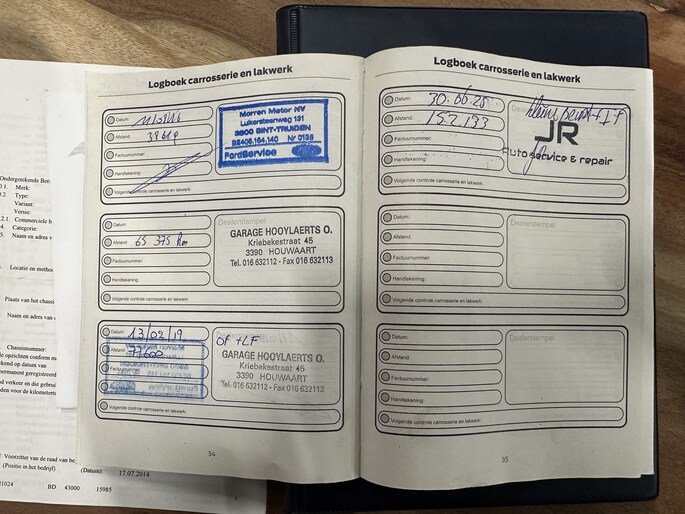 Ondergetekende Ben
0.1. Merk:
0.2. Type:
Variant:
Versie:
0.2.1. Commerciele b
0.4. Categorie:
0.5. Naam en adres v
Locatie en methode
Plaats van het chassi
Naam en adres van
Chassisnummer:
de opzichten conform m
ekend op datum van
permanent geregistreerd
Voorzitter van de raad van be
(Positie in het bedrijf)
(Datum): 17.07.2014
BD 43000 15985
Logboek carrosserie en lakwerk
Datum:
Afstand:
Factuurnummer:
Handtekening:
Volgende controle carrosserie en lakwerk:
Morren Motor NV
Luikersteenweg 191
3800 SINT-TRUIDEN
BE406.164.140 Nr 0135
FordService
Datum:
Afstand: 65 375 km
Factuurnummer:
Handtekening:
Volgende controle carrosserie en lakwerk:
Dealerstempel
GARAGE HOOYLAERTS O.
Kriebekestraat 45
3390 HOUWAART
Tel. 016 632112 - Fax 016 632113
Datum: 13/02/19
Afstand: 77600
Volgende controle carrosserie en lakwerk:
OF + LF
GARAGE HOOYLAERTS O.
Kriebekestraat 45
3390 HOUWAART
Tel. 016 632112 - Fax 016 632113
34
Logboek carrosserie en lakwerk
Datum: 30.06.25
Afstand: 152.193
Factuurnummer:
Handtekening:
Volgende controle carrosserie en lakwerk:
JR
Auto service & repair
Datum:
Afstand:
Factuurnummer:
Handtekening:
Volgende controle carrosserie en lakwerk:
Dealerstempel
Datum:
Afstand:
Factuurnummer:
Handtekening:
Volgende controle carrosserie en lakwerk:
Dealerstempel
35